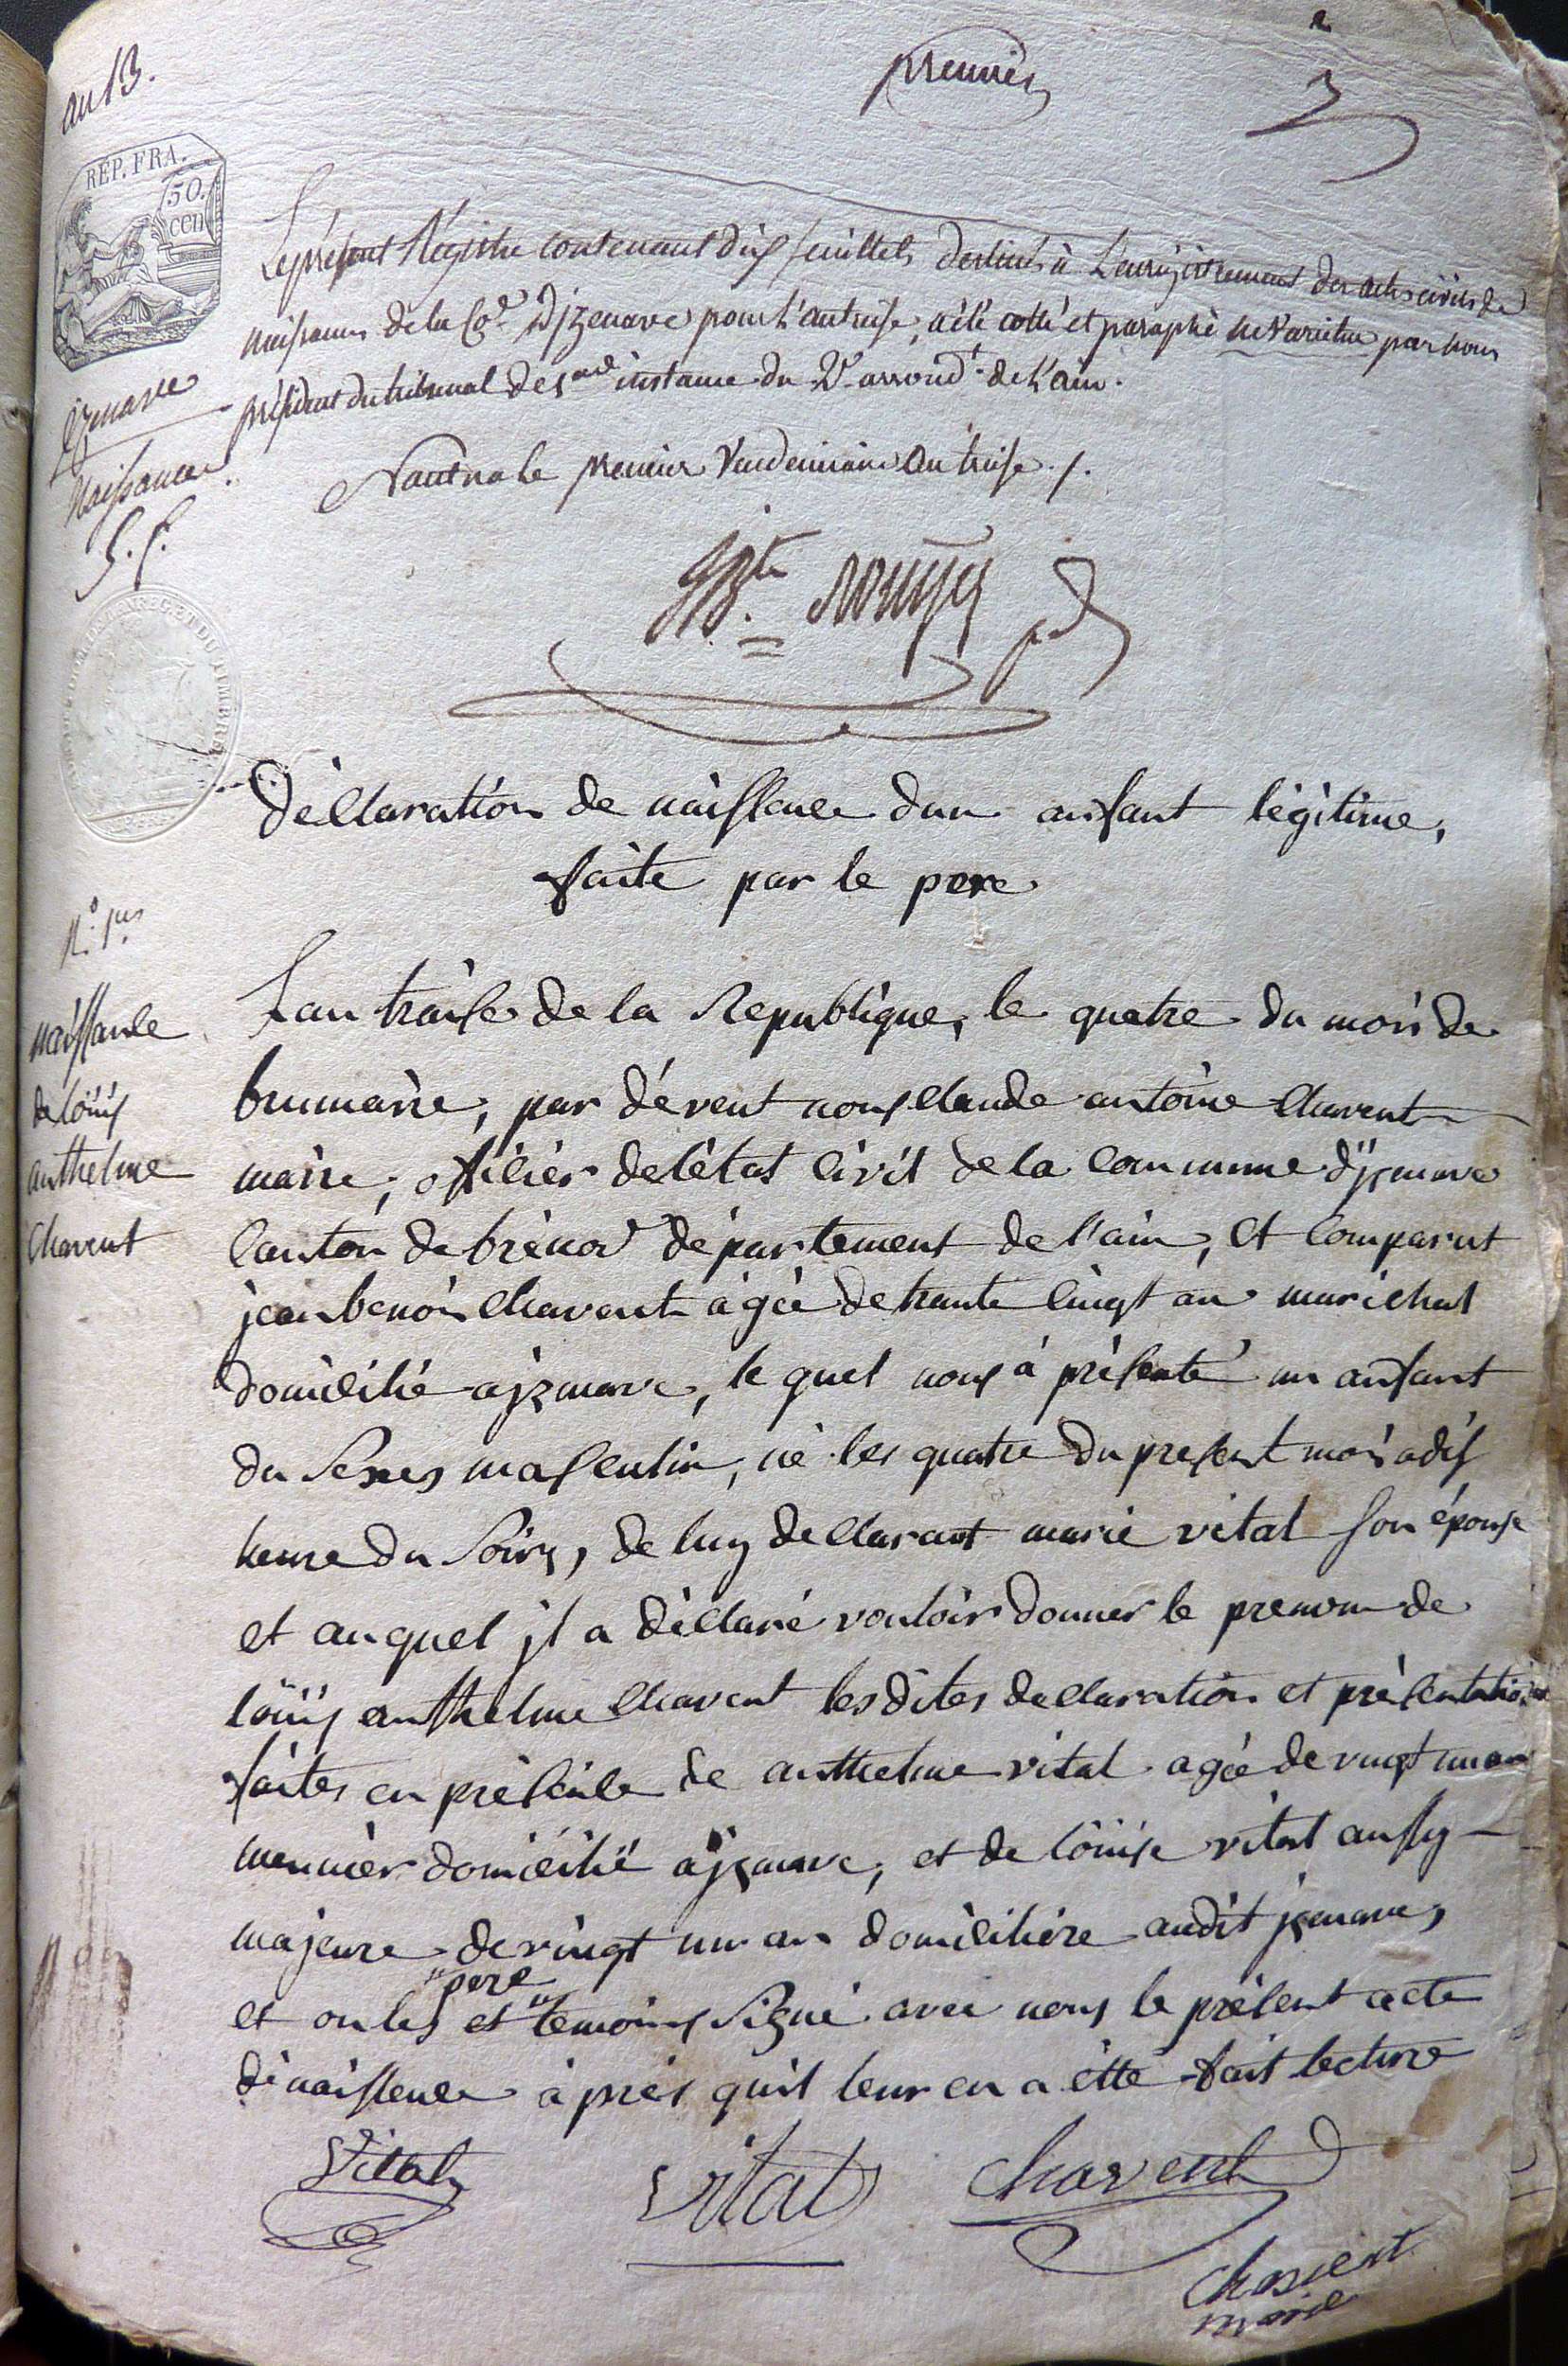 an 13.
premier
REP. FRA.
50.
cen
Le présent Régistre contenant dix feuillets destinés à L'enrégistrement des actes civils de
naissances de la Co.e D'jzenave pour L'an treise, a été cotté et paraphé ne varietur par nous
président du tribunal de 1.ere instance du 2.e arrond.t de L'ain.
Nantua le premier Vendemiaire an treise ./.
jzenave
Naissances.
déclaration de naissence dun anfant légitime,
faite par le pere
N.o 1.er
naissance
de loüis
anthelme
Chavent
Lan traise de la Republique, le quatre du mois de
brumaire, par dévent nous Claude antoine Chavent
maire, officier de létat civil de la commune d'jzenave
Canton de brénod département de l'ain, Et comparut
jean benoi Chavent agée de trante cinqt an marichal
domicilié a jzenave, le quel nous à présenté un anfant
du Sexes masculin, né les quatre du present mois a dix
heure du Soirs, de luy declarant marie vital Son épouse
et au quel jl a déclaré vouloir donner le prenom de
loüis anthelme Chavent les dites declaration et présentation
faites en présence de anthelme vital agée de vingt un an
meunier domicilié a jzenave, et de loüise vital aussy
majeure de vingt un an domicilière audit jzenave,
pere
et on les et temoins Signé avec nous le présent acte
de naissence après quil leur en a étté fait lecture
Vital
Vital
Chavent
Chavent
maire